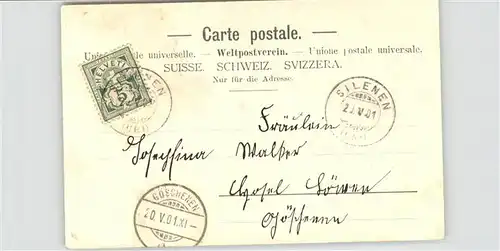 — Carte postale. —
Union postale universelle. — Weltpostverein. — Unione postale universale.
SUISSE. SCHWEIZ. SVIZZERA.
Nur für die Adresse.
HELVETIA
5
SILENEN
20.V.01
(URI)
Fräulein
Josephina Walker
Hotel Löwen
Göschenen
GÖSCHENEN
20.V.01.XI–